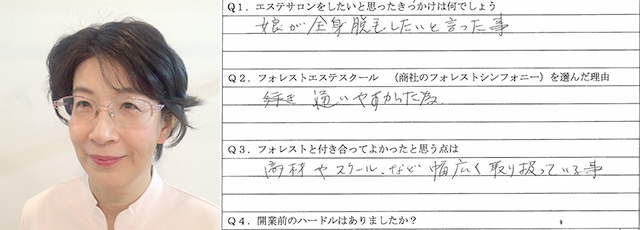 Q1．エステサロンをしたいと思ったきっかけは何でしょう
娘が全身脱毛したいと言った事
Q2．フォレストエステスクール　（商社のフォレストシンフォニー）を選んだ理由
通いやすかった為。
Q3．フォレストと付き合ってよかったと思う点は
商材やスクール、など幅広く取り扱っている事
Q4．開業前のハードルはありましたか？